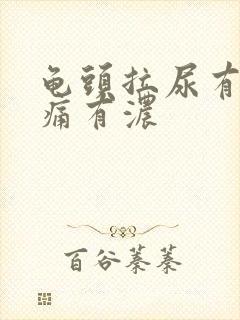 龟頭拉尿有
痛有濃
百谷蓁蓁